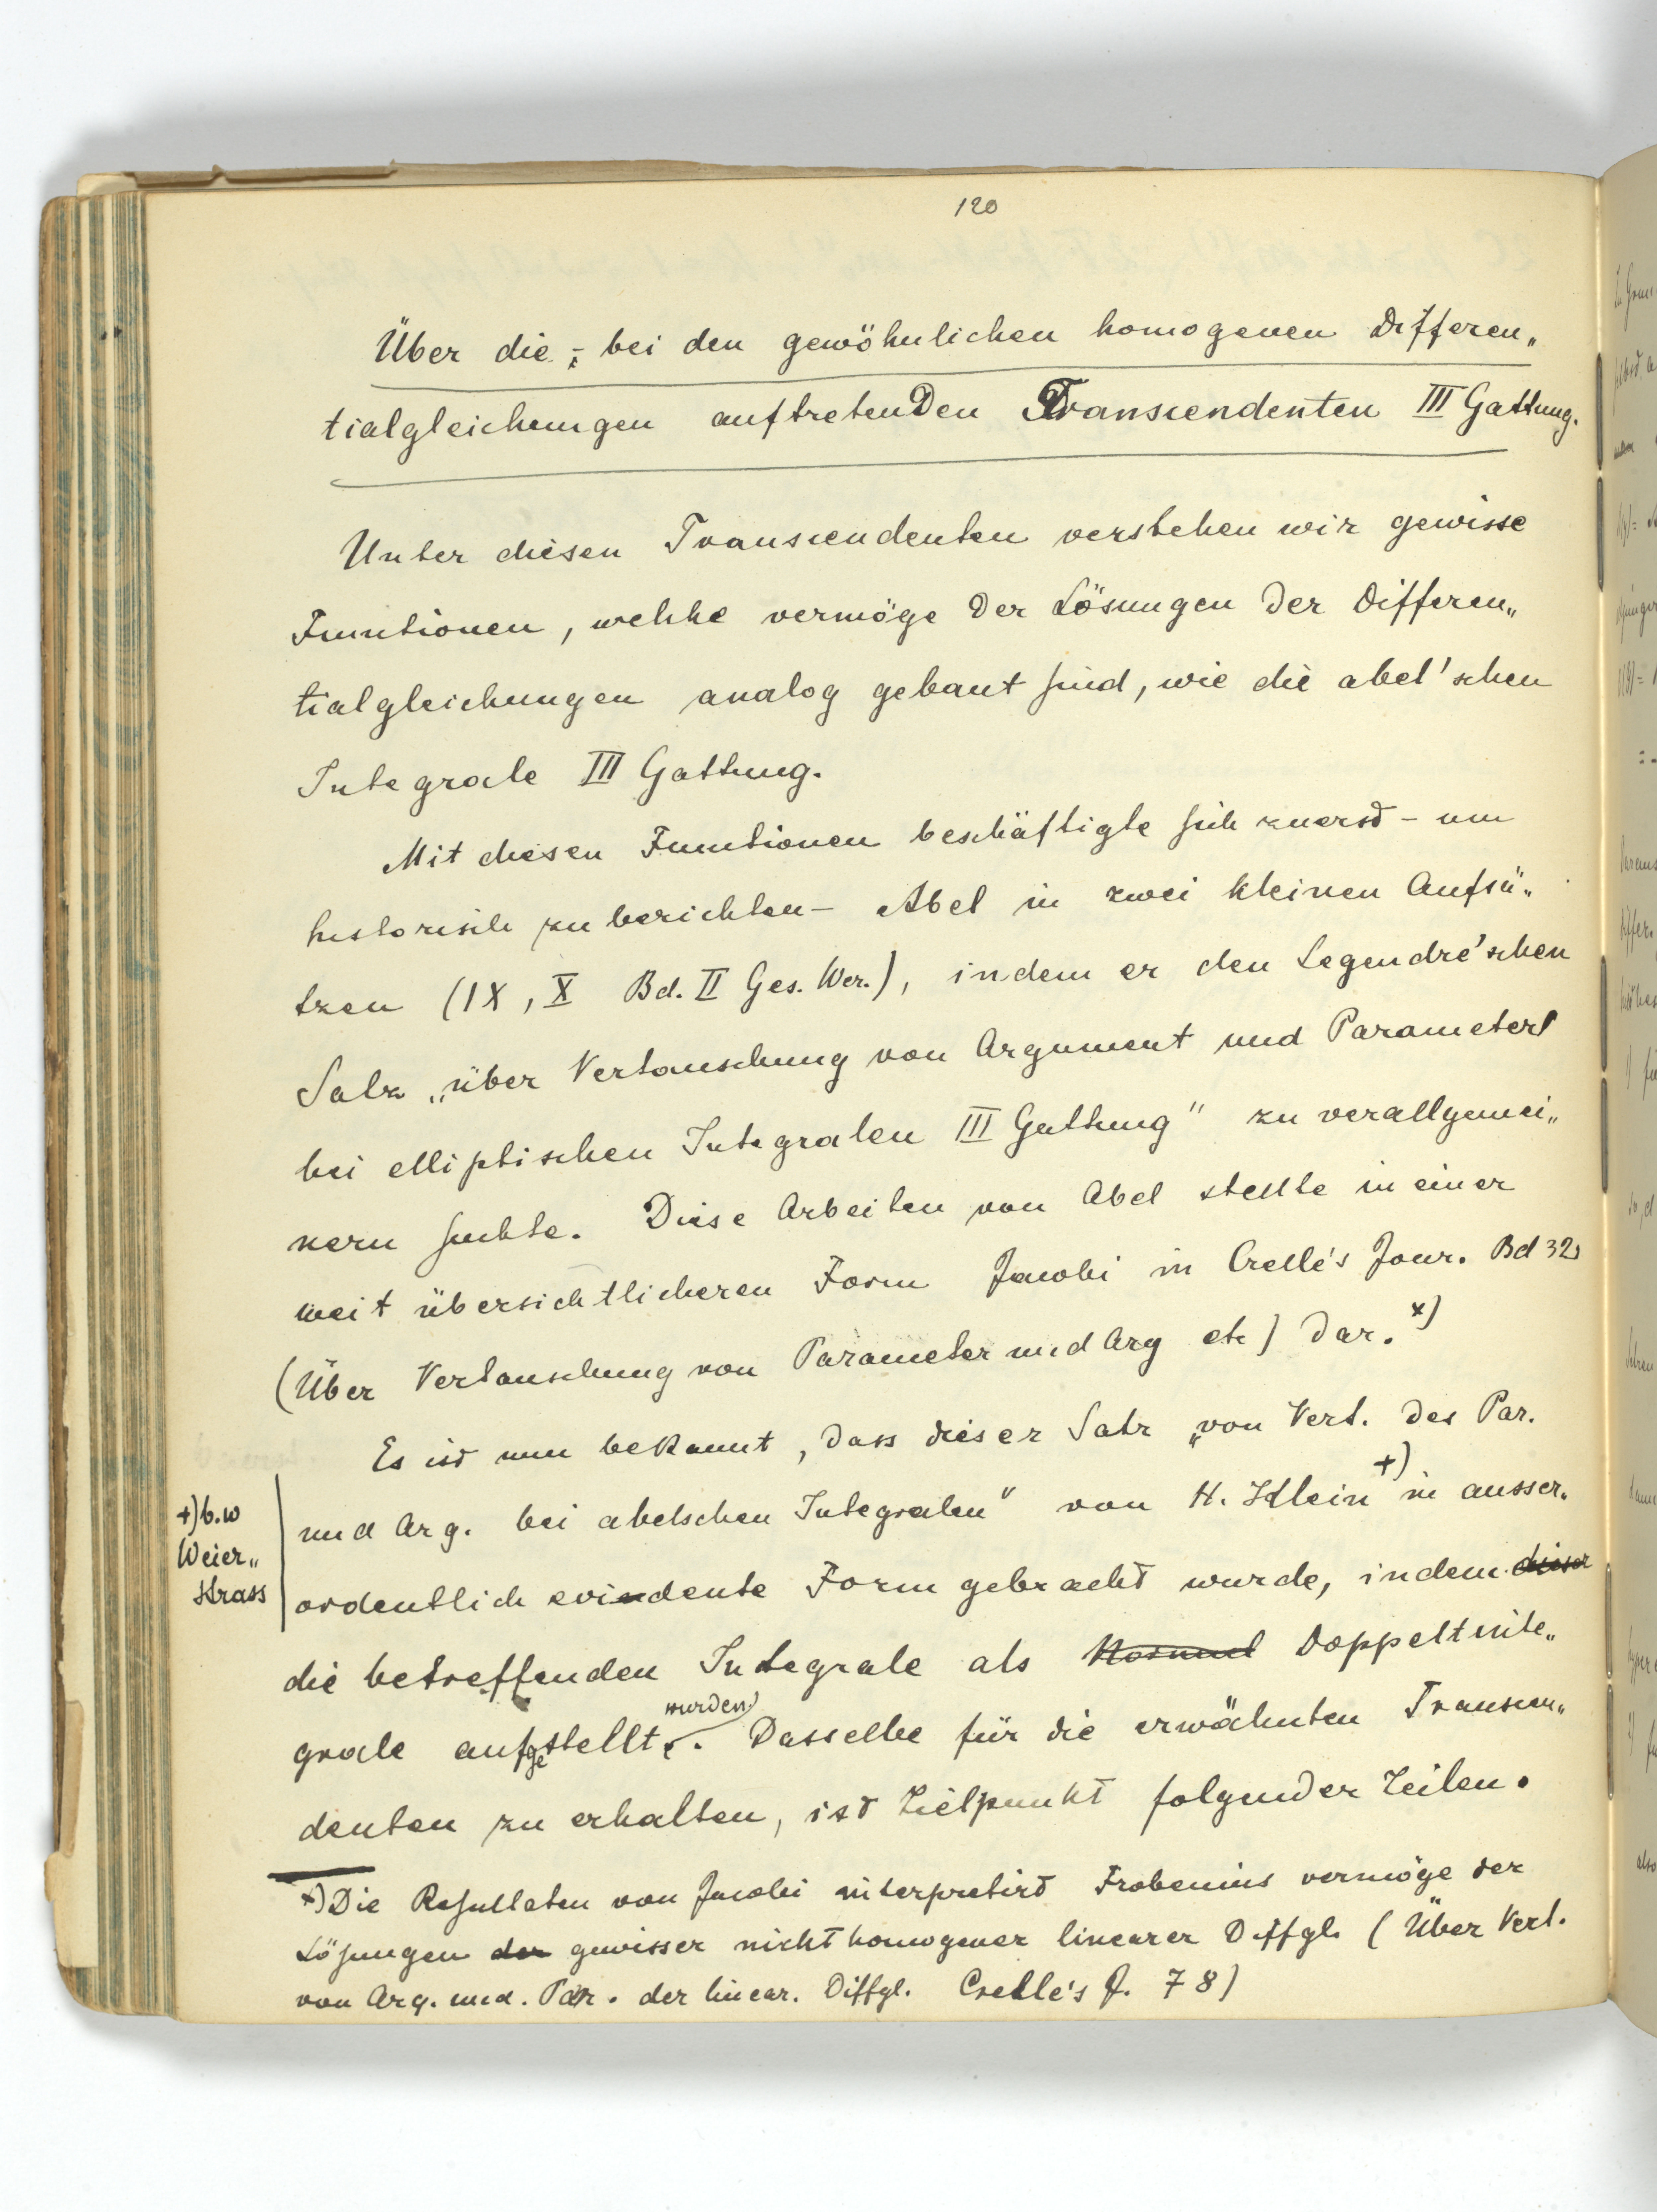 120
Über die, - bei den gewöhnlichen homogenen Differen„
tialgleichungen auftretenden Transcendenten III Gattung.
Unter diesen Transcendenten verstehen wir gewisse
Functionen, welche vermöge der Lösungen der Differen„
tialgleichungen analog gebaut sind, wie die abel'schen
Integrale III Gattung.
Mit diesen Functionen beschäftigte sich zuerst – um
historisch zu berichten – Abel in zwei kleinen Aufsä„
tzen (IX, X Bd. II Ges. Wer.), indem er den Legendre'schen
Satz „über Vertauschung von Argument und Parameter
bei elliptischen Integralen III Gattung" zu verallgemei„
nern suchte. Diese Arbeiten von Abel stellte in einer
weit übersichtlicheren Form Jacobi in Crelle's Jour. Bd 32
(Über Vertauschung von Parameter und Arg etc) dar. x)
Es ist nun bekannt, dass dieser Satz „von Vert. des Par.
und Arg. bei abelschen Integralen" von H. Klein +) in ausser„
+) b.w
Weier„
strass
ordentlich evidente Form gebracht wurde, indem dieser
die betreffenden Integrale als Normal Doppeltinte„
grale aufgestellt wurden. Dasselbe für die erwähnten Transcen„
denten zu erhalten, ist Zielpunkt folgender Zeilen.
x) Die Resultaten von Jacobi interpretirt Frobenius vermöge der
Lösungen der gewisser nicht homogener linearer Diffgl. (Über Vert.
von Arg. und. Par. der linear. Diffgl. Crelle's J. 78)